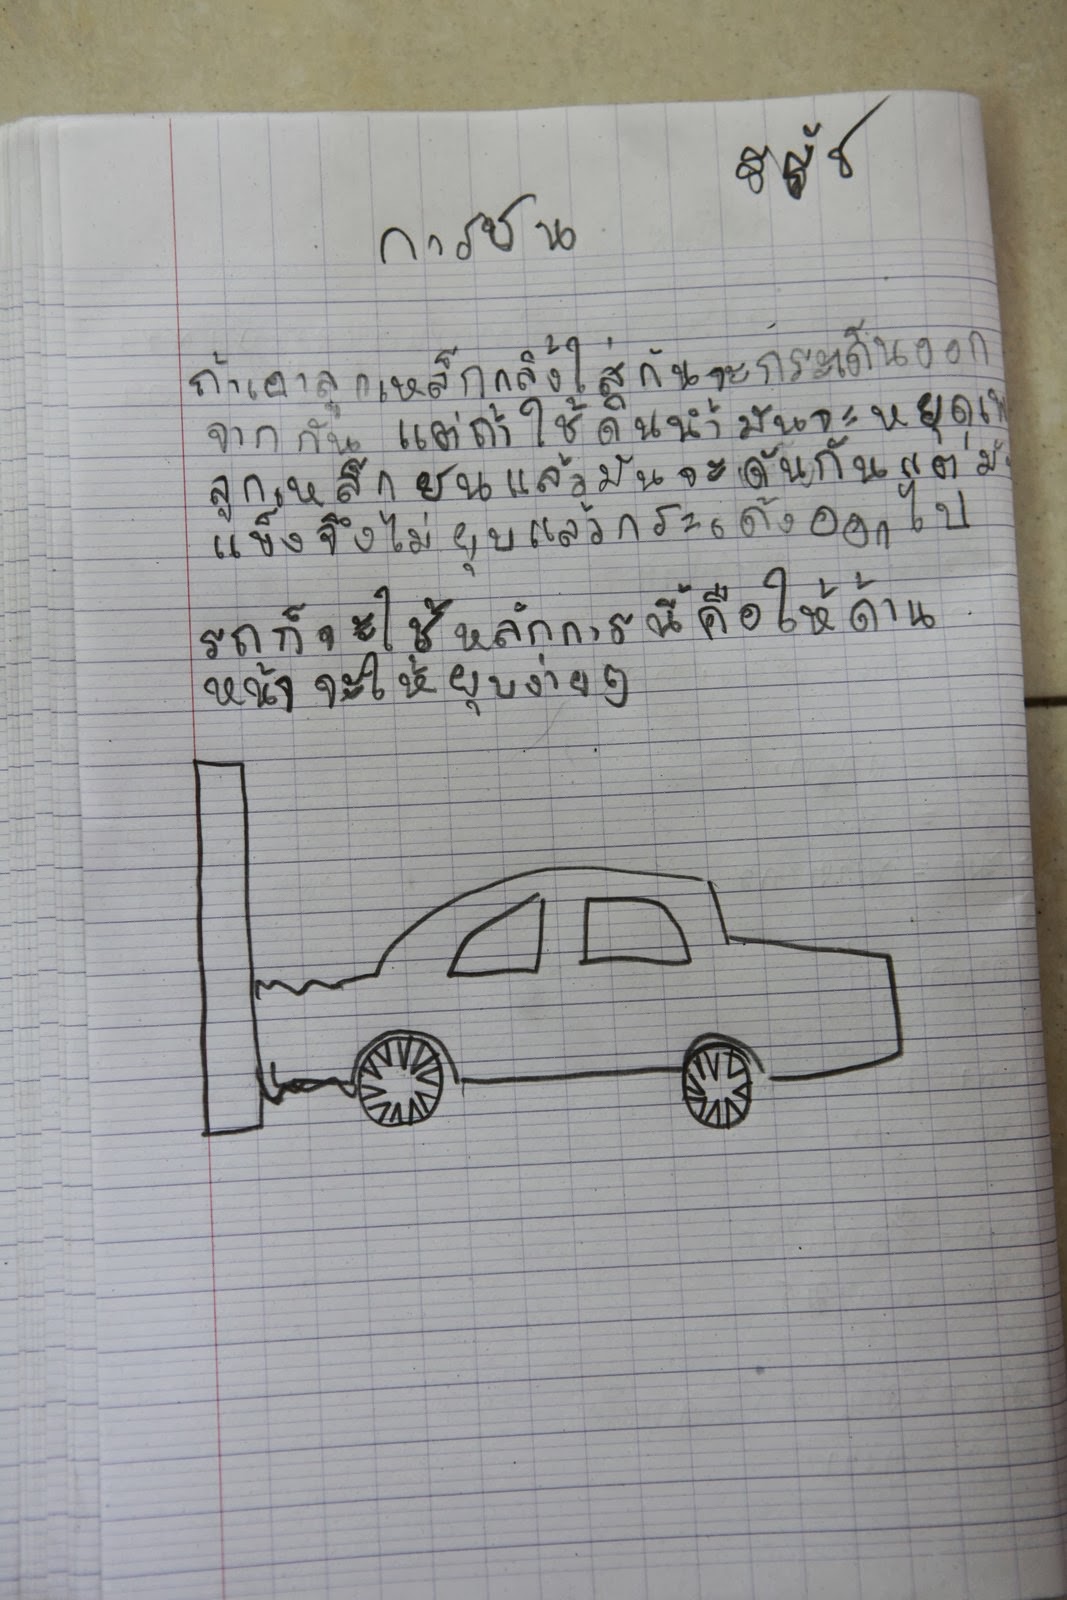 การชน
ถ้าเอาลูกเหล็กกลิ้งใส่กันจะกระเด็นออก
จากกัน แต่ถ้าใช้ดินน้ำมันจะหยุด
ลูกเหล็กชนแล้วมันจะดันกันแต่
แข็งจึงไม่ยุบแล้วกระเด้งออกไป
รถก็จะใช้หลักการนี้คือให้ด้าน
หน้าจะให้ยุบง่ายๆ